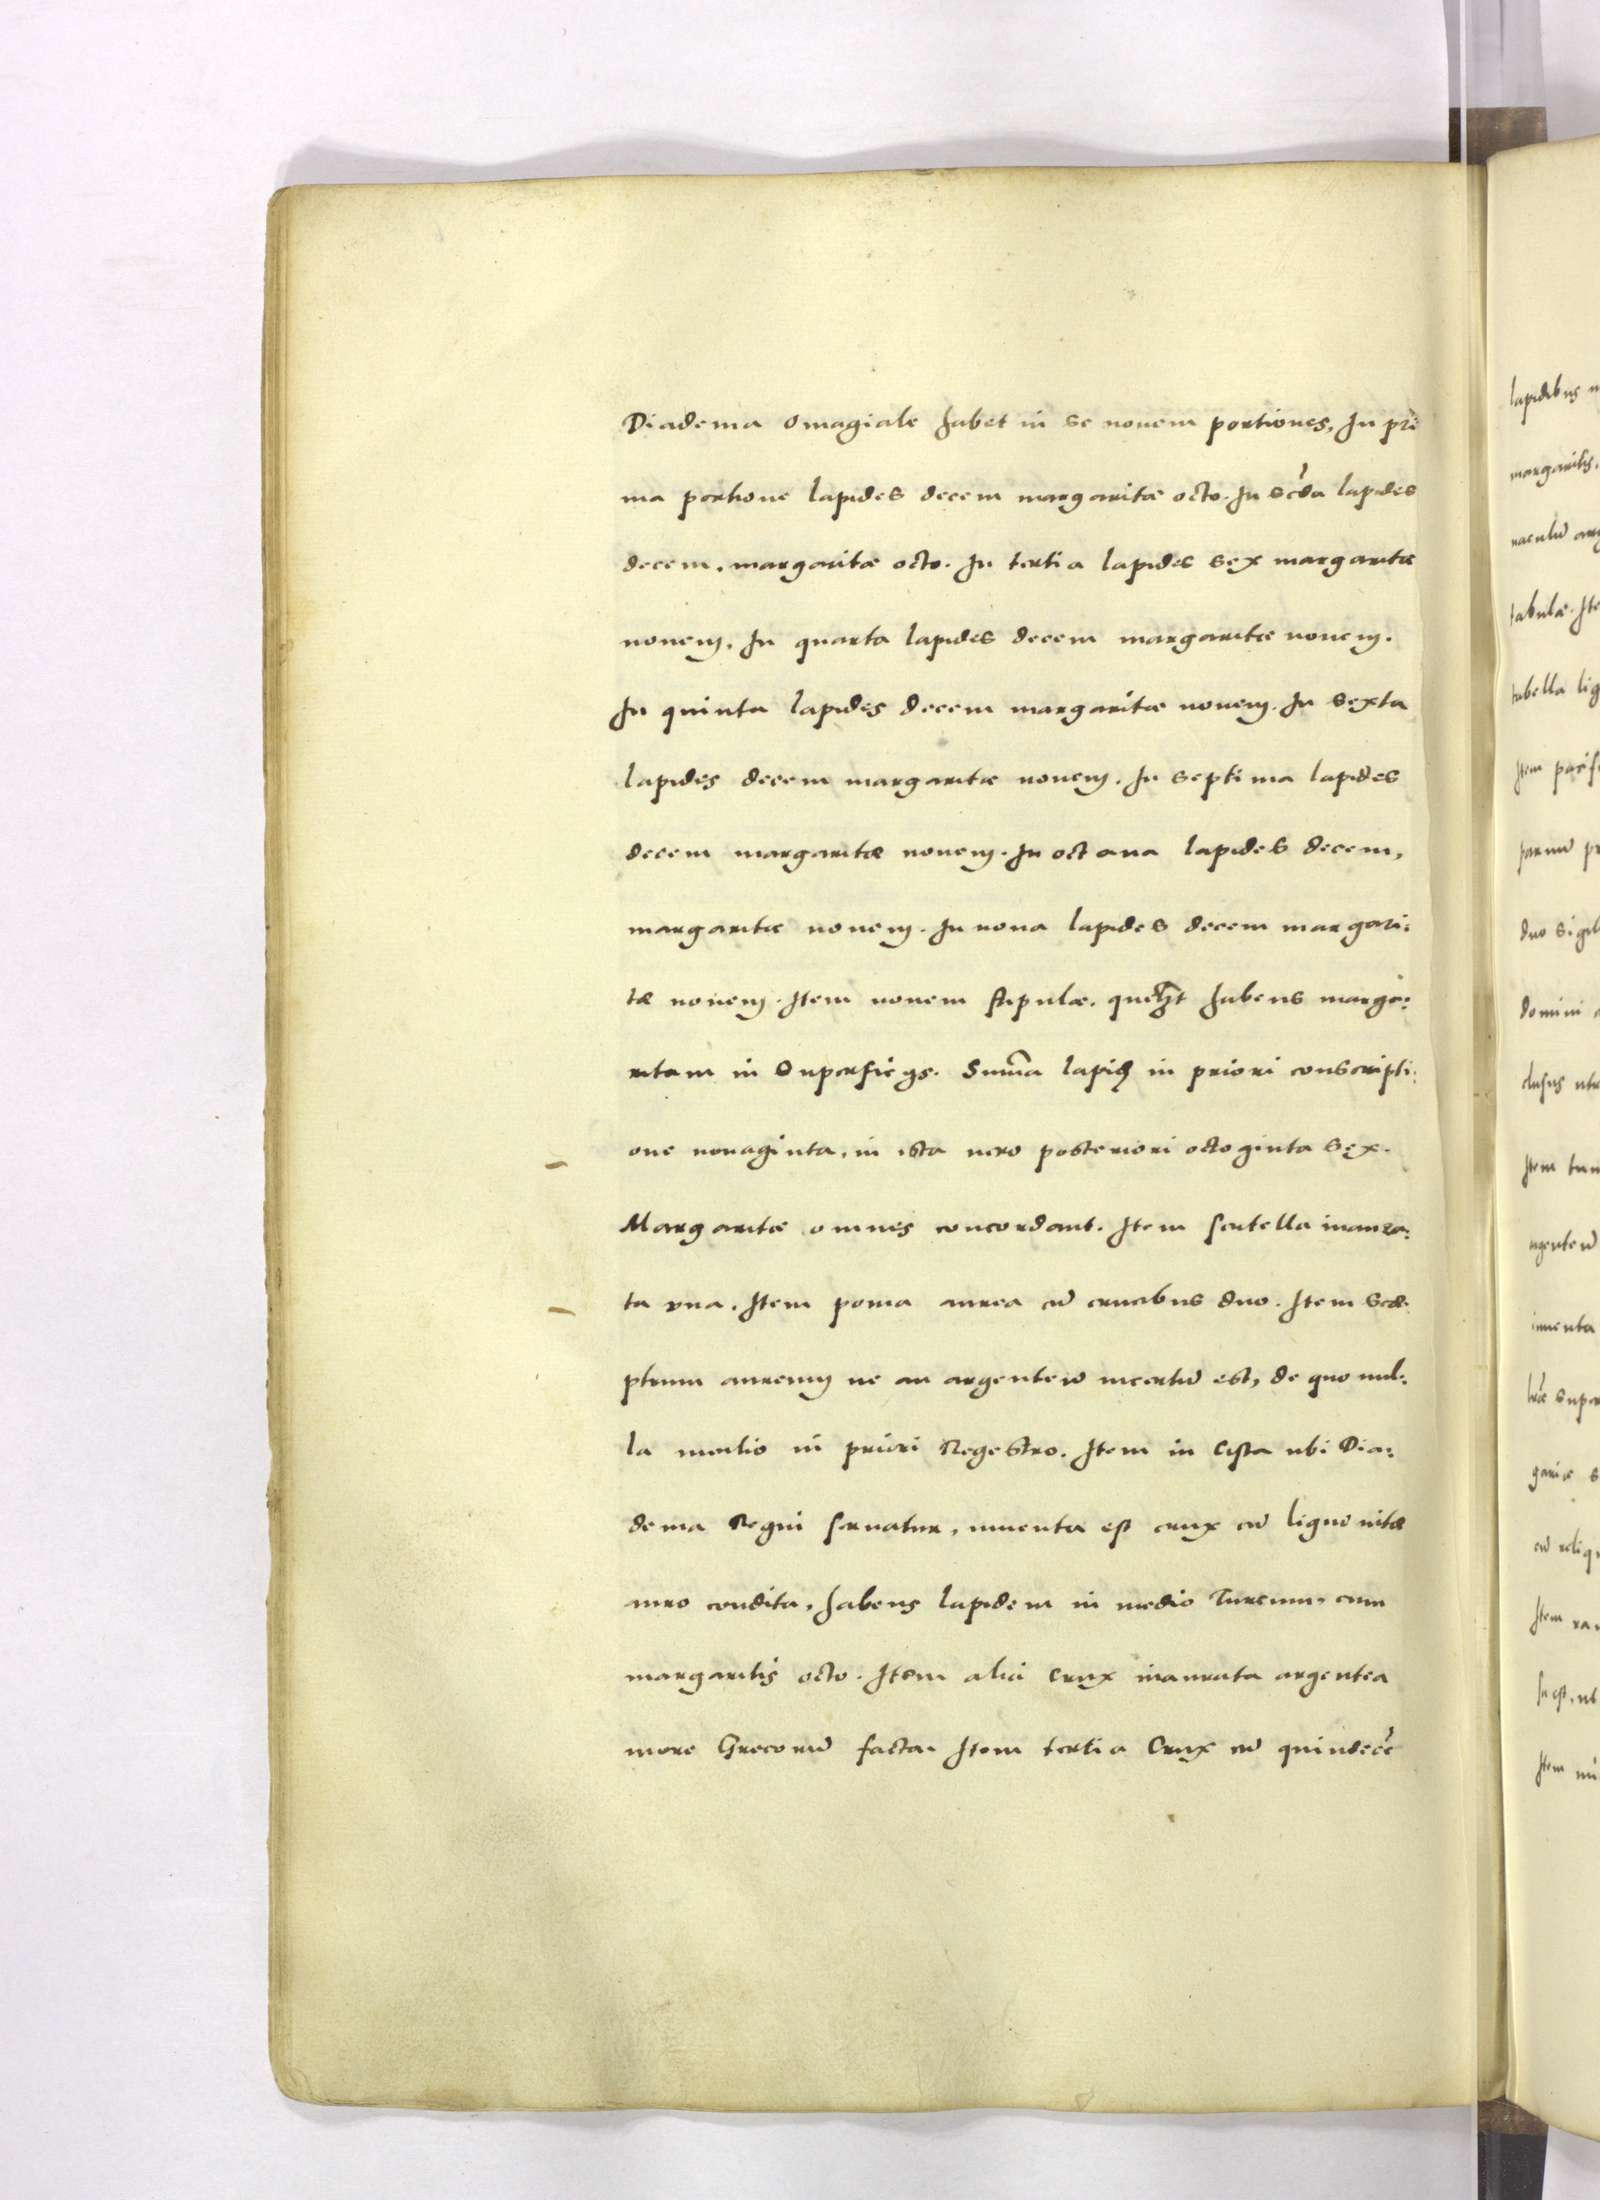 Diadema Omagiale habet in se novem portiones, In pri
ma portione lapides decem margaritæ octo. In scďa lapides
decem, margaritæ octo. In tertia lapides sex margaritæ
novem. In quarta lapides decem margaritæ novem.
In quinta lapides decem margaritæ novem. In sexta
lapides decem margaritæ novem. In septima lapides
decem margaritæ novem. In octava lapides decem,
margaritæ novem. In nona lapides decem margari:
tæ novem. Item novem stipulæ, habens marga:
ritam in Superficys. Summa in priori conscripti:
one nonaginta, in ista vero posteriori octoginta sex.
Margaritæ omnes concordant. Item scutella inaura:
ta vna. Item poma aurea cū crucibus duo. Item Scæ:
ptrum aureum ne an argenteū incertū est, de quo nul:
la mentio in priori Regestro. Item in Cista ubi Dia:
dema Regni servatur, inventa est crux cū ligno vitæ
auro condita, habens lapidem in medio Turcinum, cum
margaritis octo. Item alia Crux inaurata argentea
more Grecorū facta. Item tertia Crux cū quindecē
lapidibus
margaritis.
tabulæ. Ite
tabella lig
Item pacif
duo sigil
domini
Item
argenteū
inventa
Item